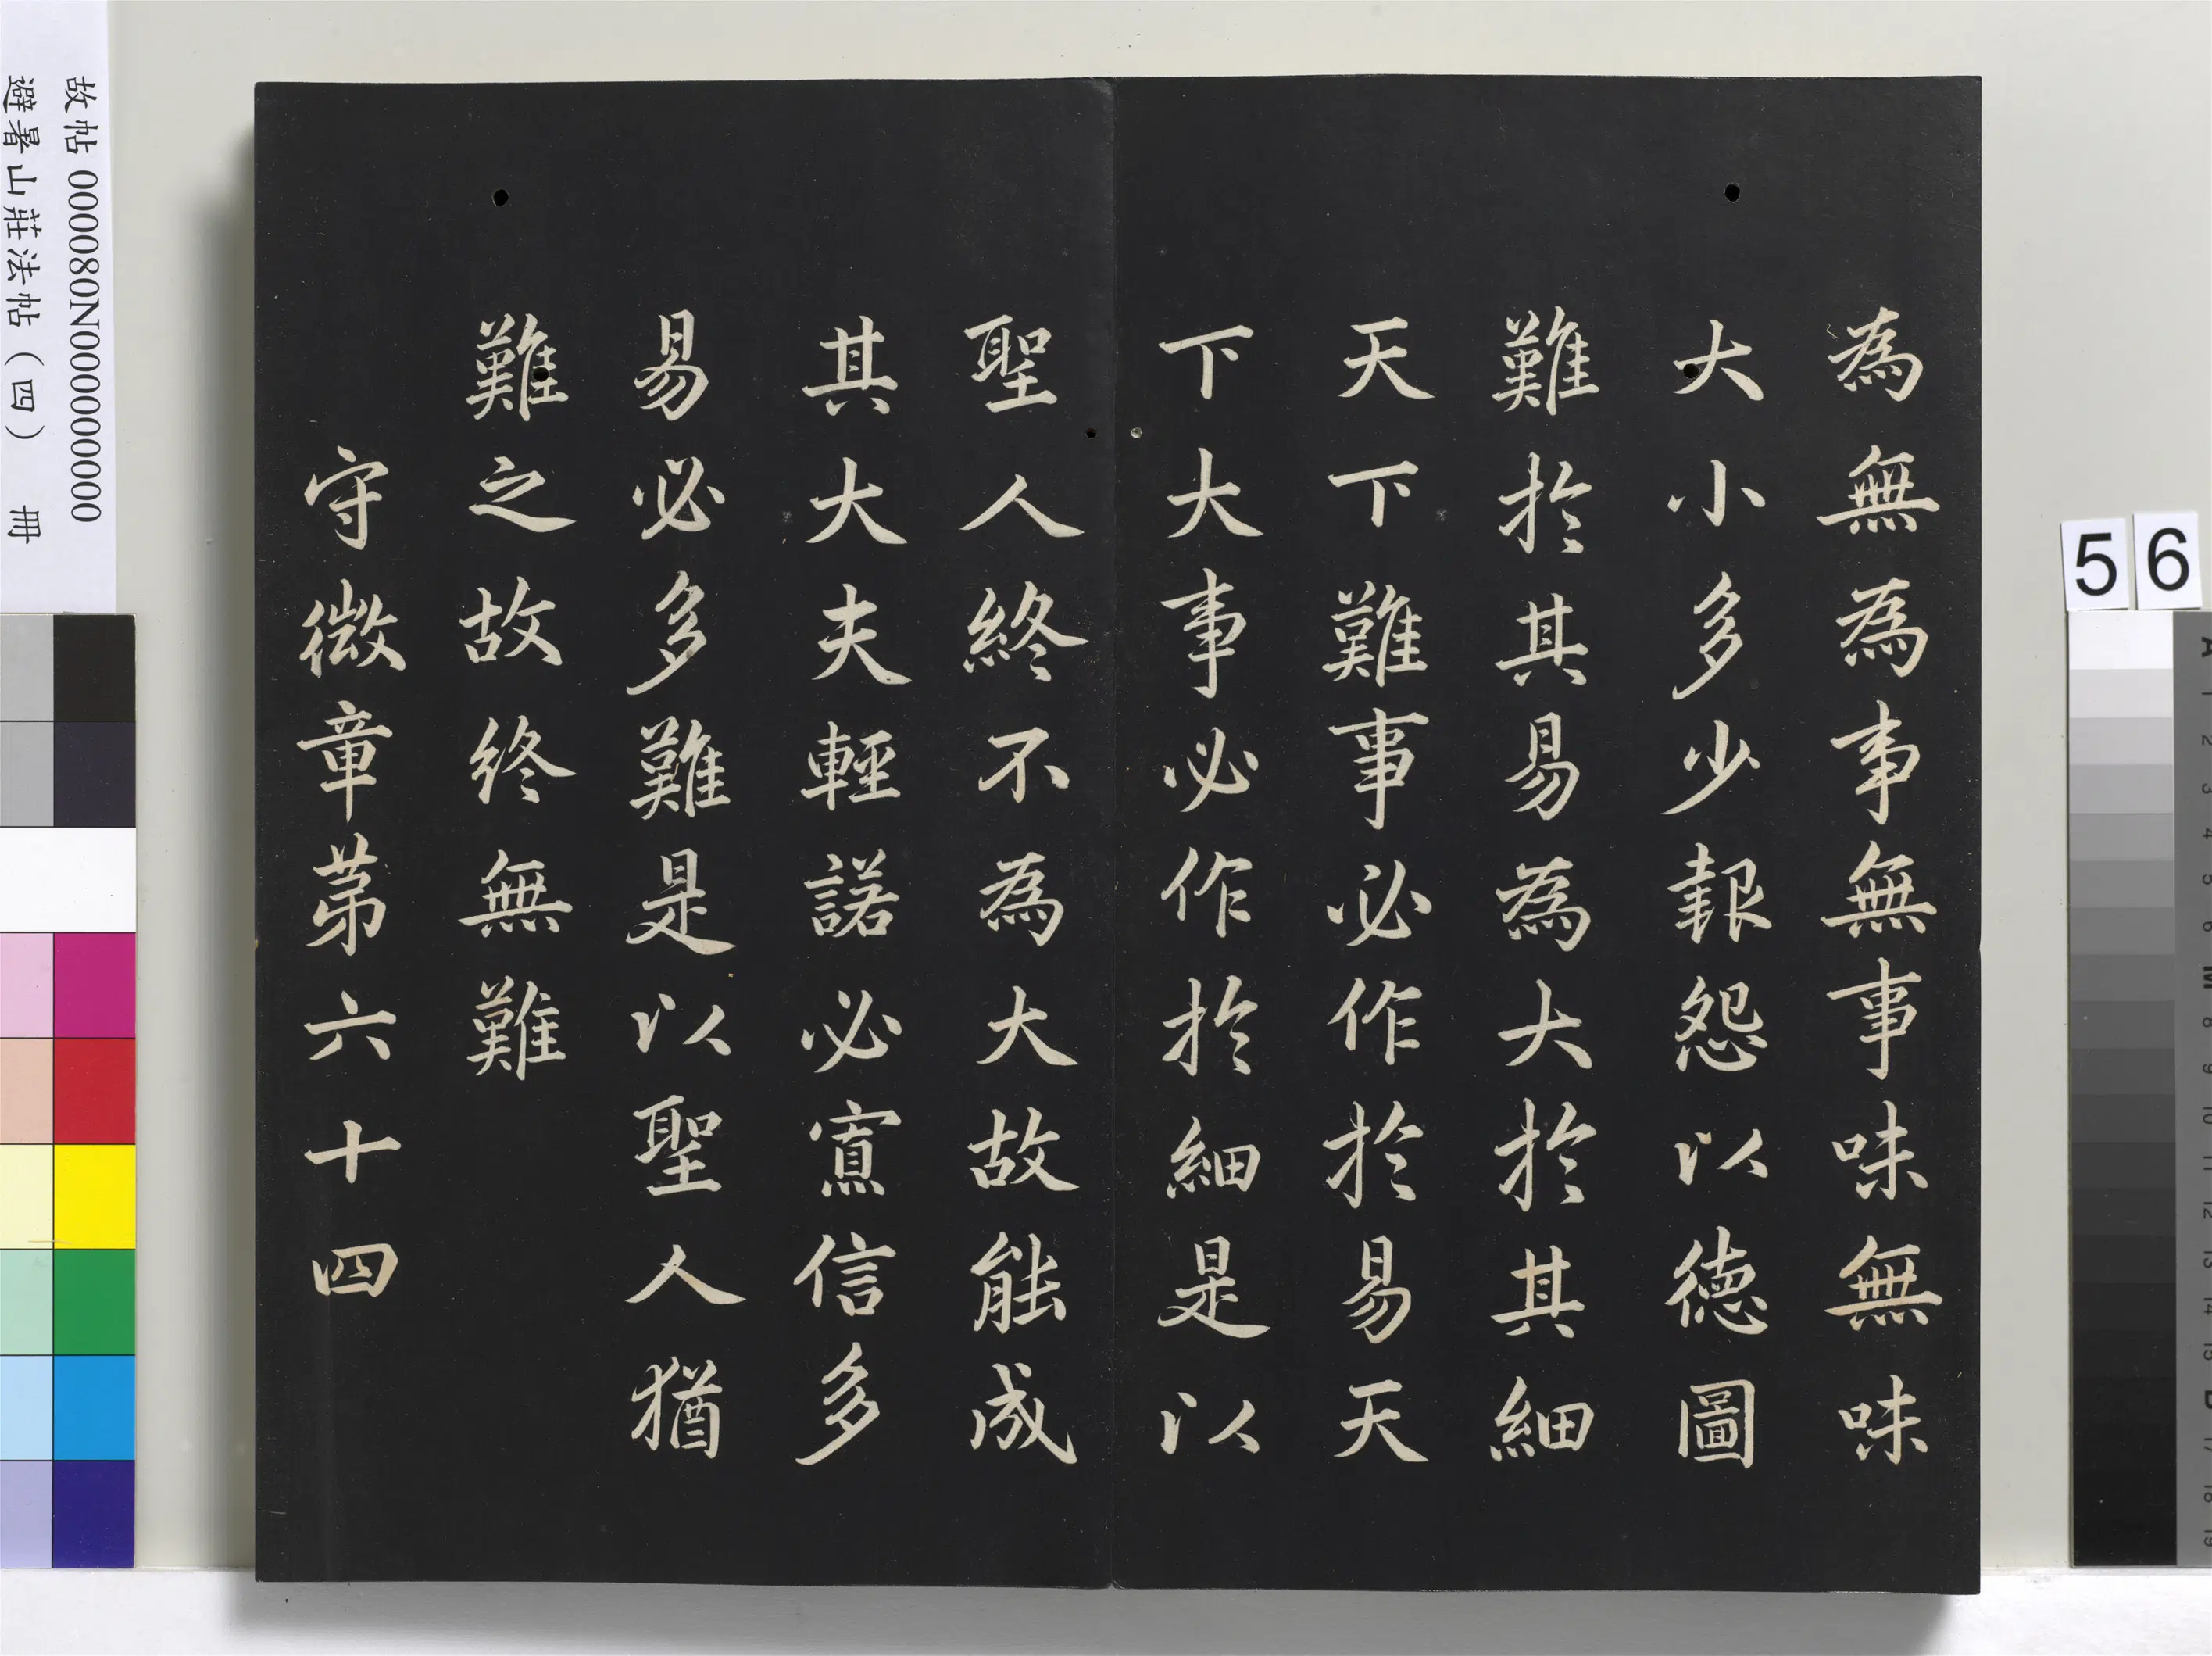 為無為事無事味無味
大小多少報怨以德圖
難於其易為大於其細
天下難事必作於易天
下大事必作於細是以
聖人終不為大故能成
其大夫輕諾必寡信多
易必多難是以聖人猶
難之故終無難
守微章第六十四
故帖 000080N000000000
避暑山莊法帖（四） 冊
56